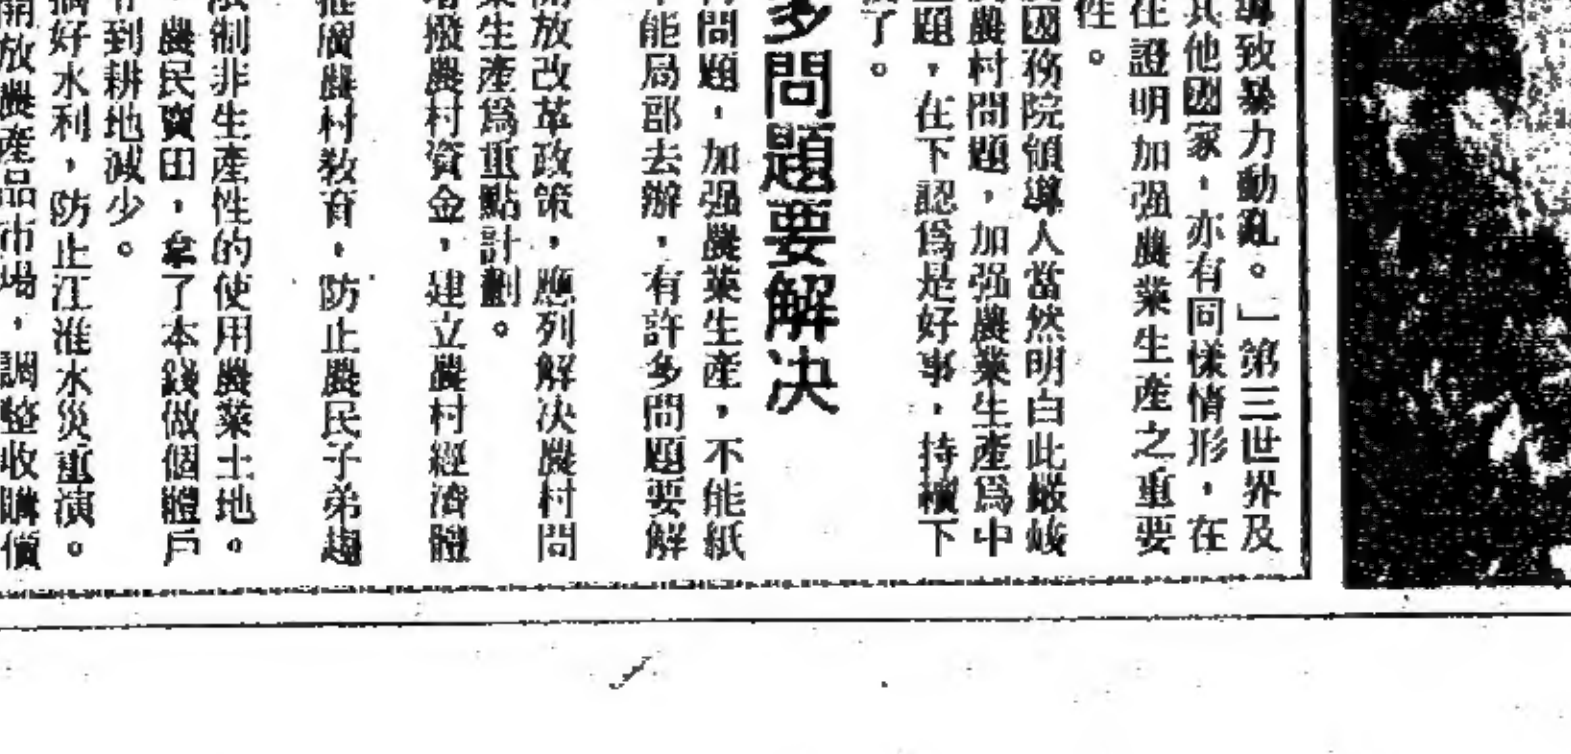 導致暴力動亂。」第三世界及
其他國家，亦有同樣情形，在
在證明加强農業生産之重要
性。
國務院領導人當然明白此嚴峻
農村問題，加强農業生産爲中
題，在下認爲是好事，持續下
了。
多問題要解决
問題，加强農業生産，不能紙
能局部去辦，有許多問題要解
開放改革政策，應列解决農村問
業生産爲重點計劃。
增撥農村資金，建立農村經濟體
推廣農村教育，防止農民子弟趨
限制非生產性的使用農業土地。
，農民賣田，拿了本錢做個體戶
到耕地減少。
搞好水利，防止江淮水災重演。
開放農産品市場，調整收購價